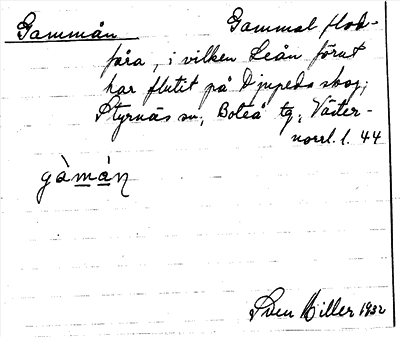 Gammån Gammal flod-
fåra, i vilken Leån förut
har flutit på Djupeds skog;
Styrnäs sn; Boteå tg; Väster-
norrl. l. 44
gàmáṇ
Sven Miller 1932